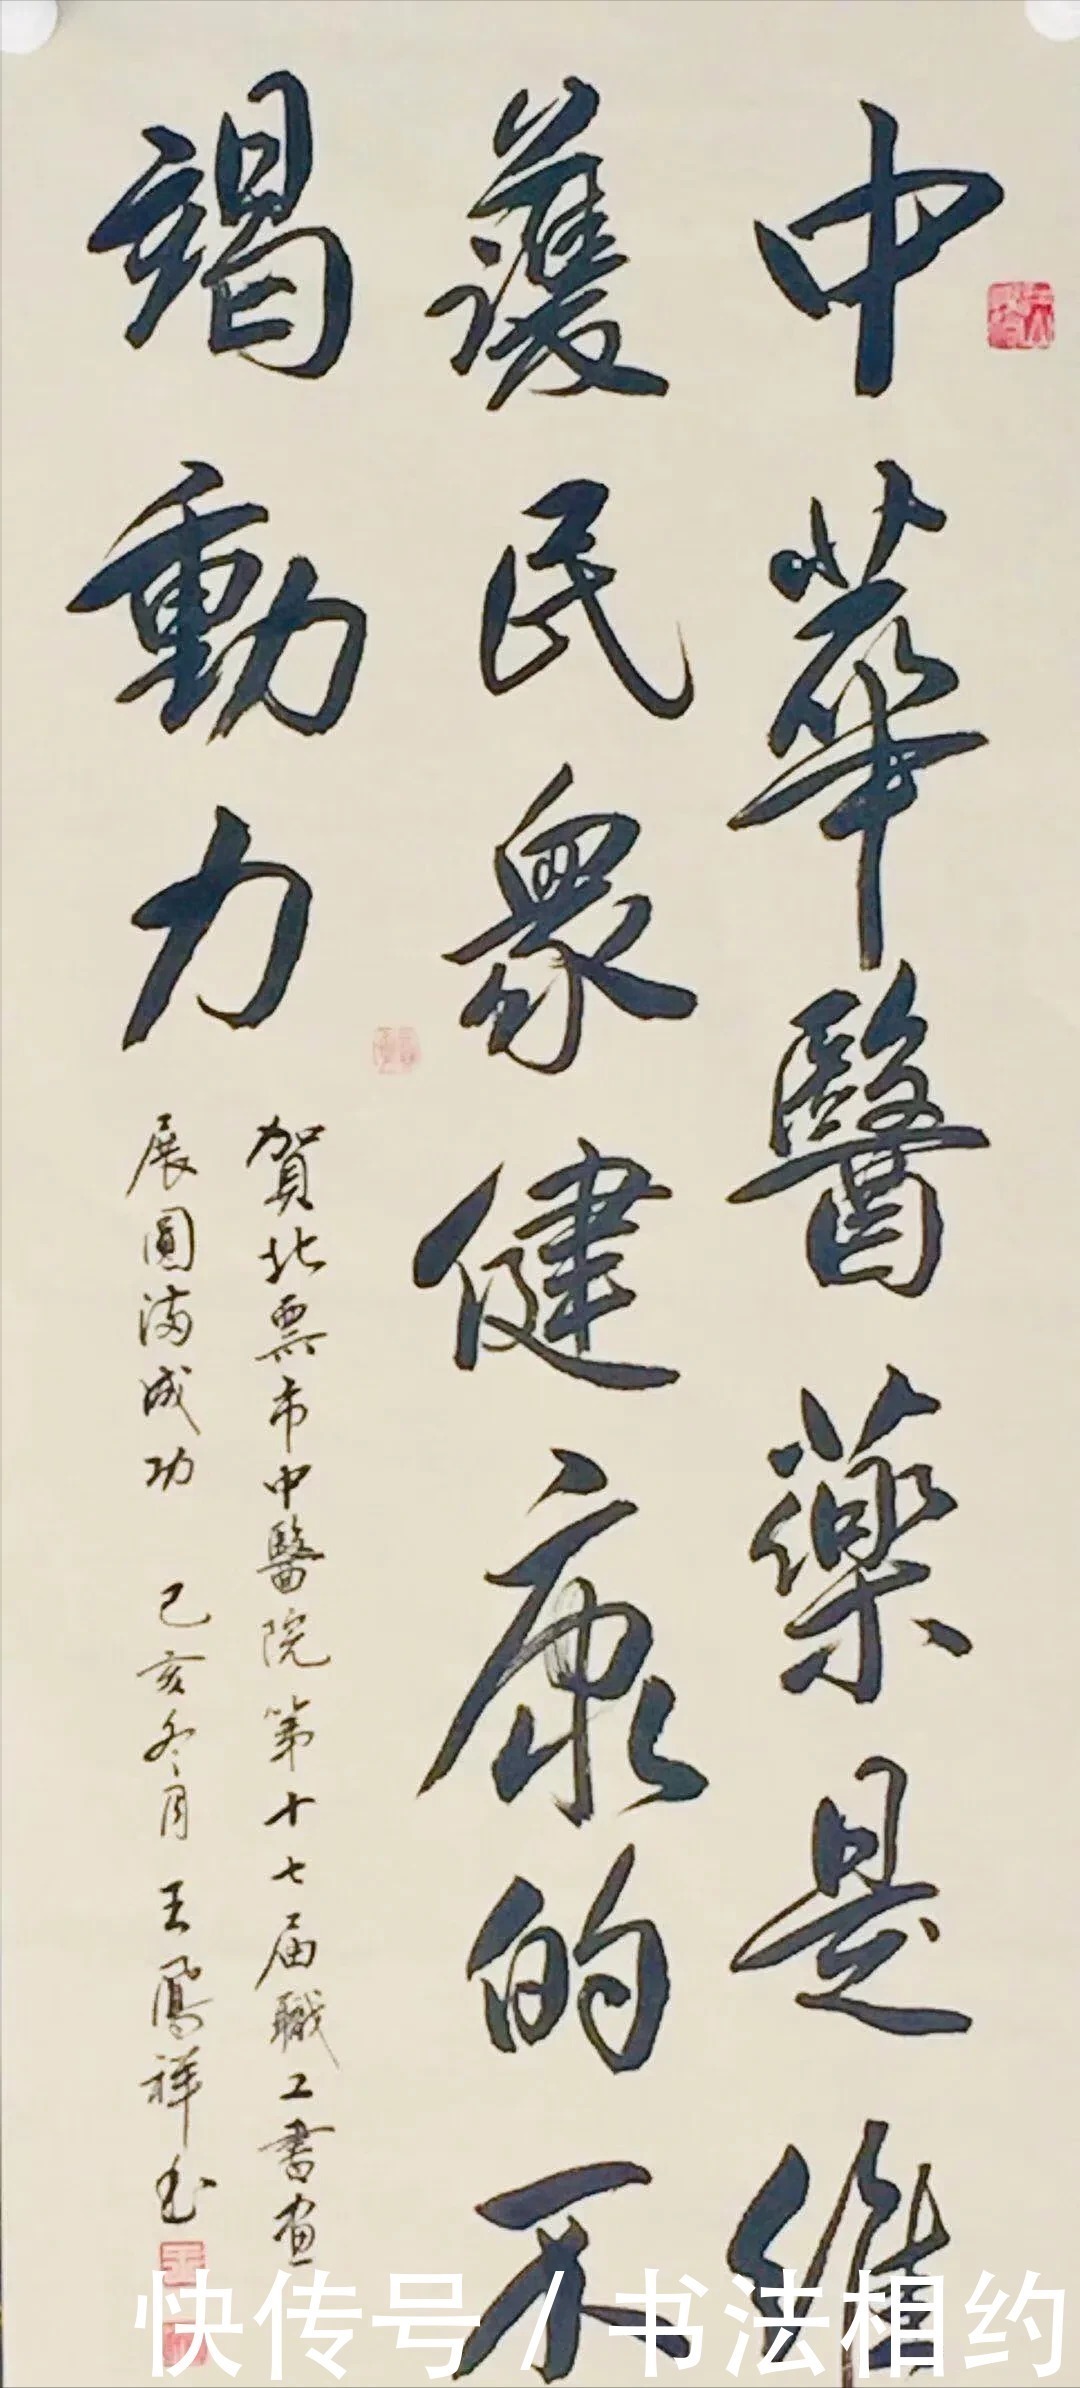 中華醫藥是維
護民眾健康的不
竭動力
賀北票市中醫院第十七届職工書画
展圓滿成功 己亥冬月 王鳳祥书
快传号 / 书法相约